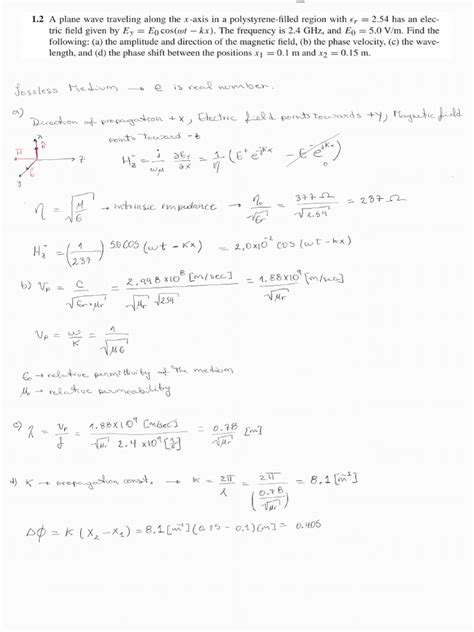 1.2 A plane wave traveling along the x-axis in a polystyrene-filled region with ϵr = 2.54 has an elec-
tric field given by Ey = E0 cos(ωt − kx). The frequency is 2.4 GHz, and E0 = 5.0 V/m. Find the
following: (a) the amplitude and direction of the magnetic field, (b) the phase velocity, (c) the wave-
length, and (d) the phase shift between the positions x1 = 0.1 m and x2 = 0.15 m.
Lossless Medium → e is real number.
a)
Direction of propagation +x, Electric field points towards +y, Magnetic field
points toward -z
x z y
Hz = j/ωμ ∂Ey/∂x = 1/η (E+ e^-jkx − E- e^jkx) 0
η = √(μ/ε) → intrinsic impedance → η0/√εr = 377 Ω/√2.54 = 237 Ω
Hz = (1/237) 5.0 cos(ωt − kx) = 2,0x10^-2 cos(ωt − kx)
b) Vp = c/√(εr x μr) = 2.998 x10^8 [m/sec]/√μr √2.54 = 1.88x10^9 [m/sec]/√μr
Vp = ω/k = 1/√(με)
→ relative permittivity of the medium
→ relative permeability
c) λ = Vp/f = 1.88x10^9 [m/sec]/√μr 2.4 x10^9 [1/s] = 0.78/√μr [m]
d) K → propagation const. → K = 2π/λ = 2π/(0.78/√μr) = 8.1 [m^-1]
Δϕ = K (X2 − X1) = 8.1 [m^-1] (0.15 − 0.1)[m] = 0.405